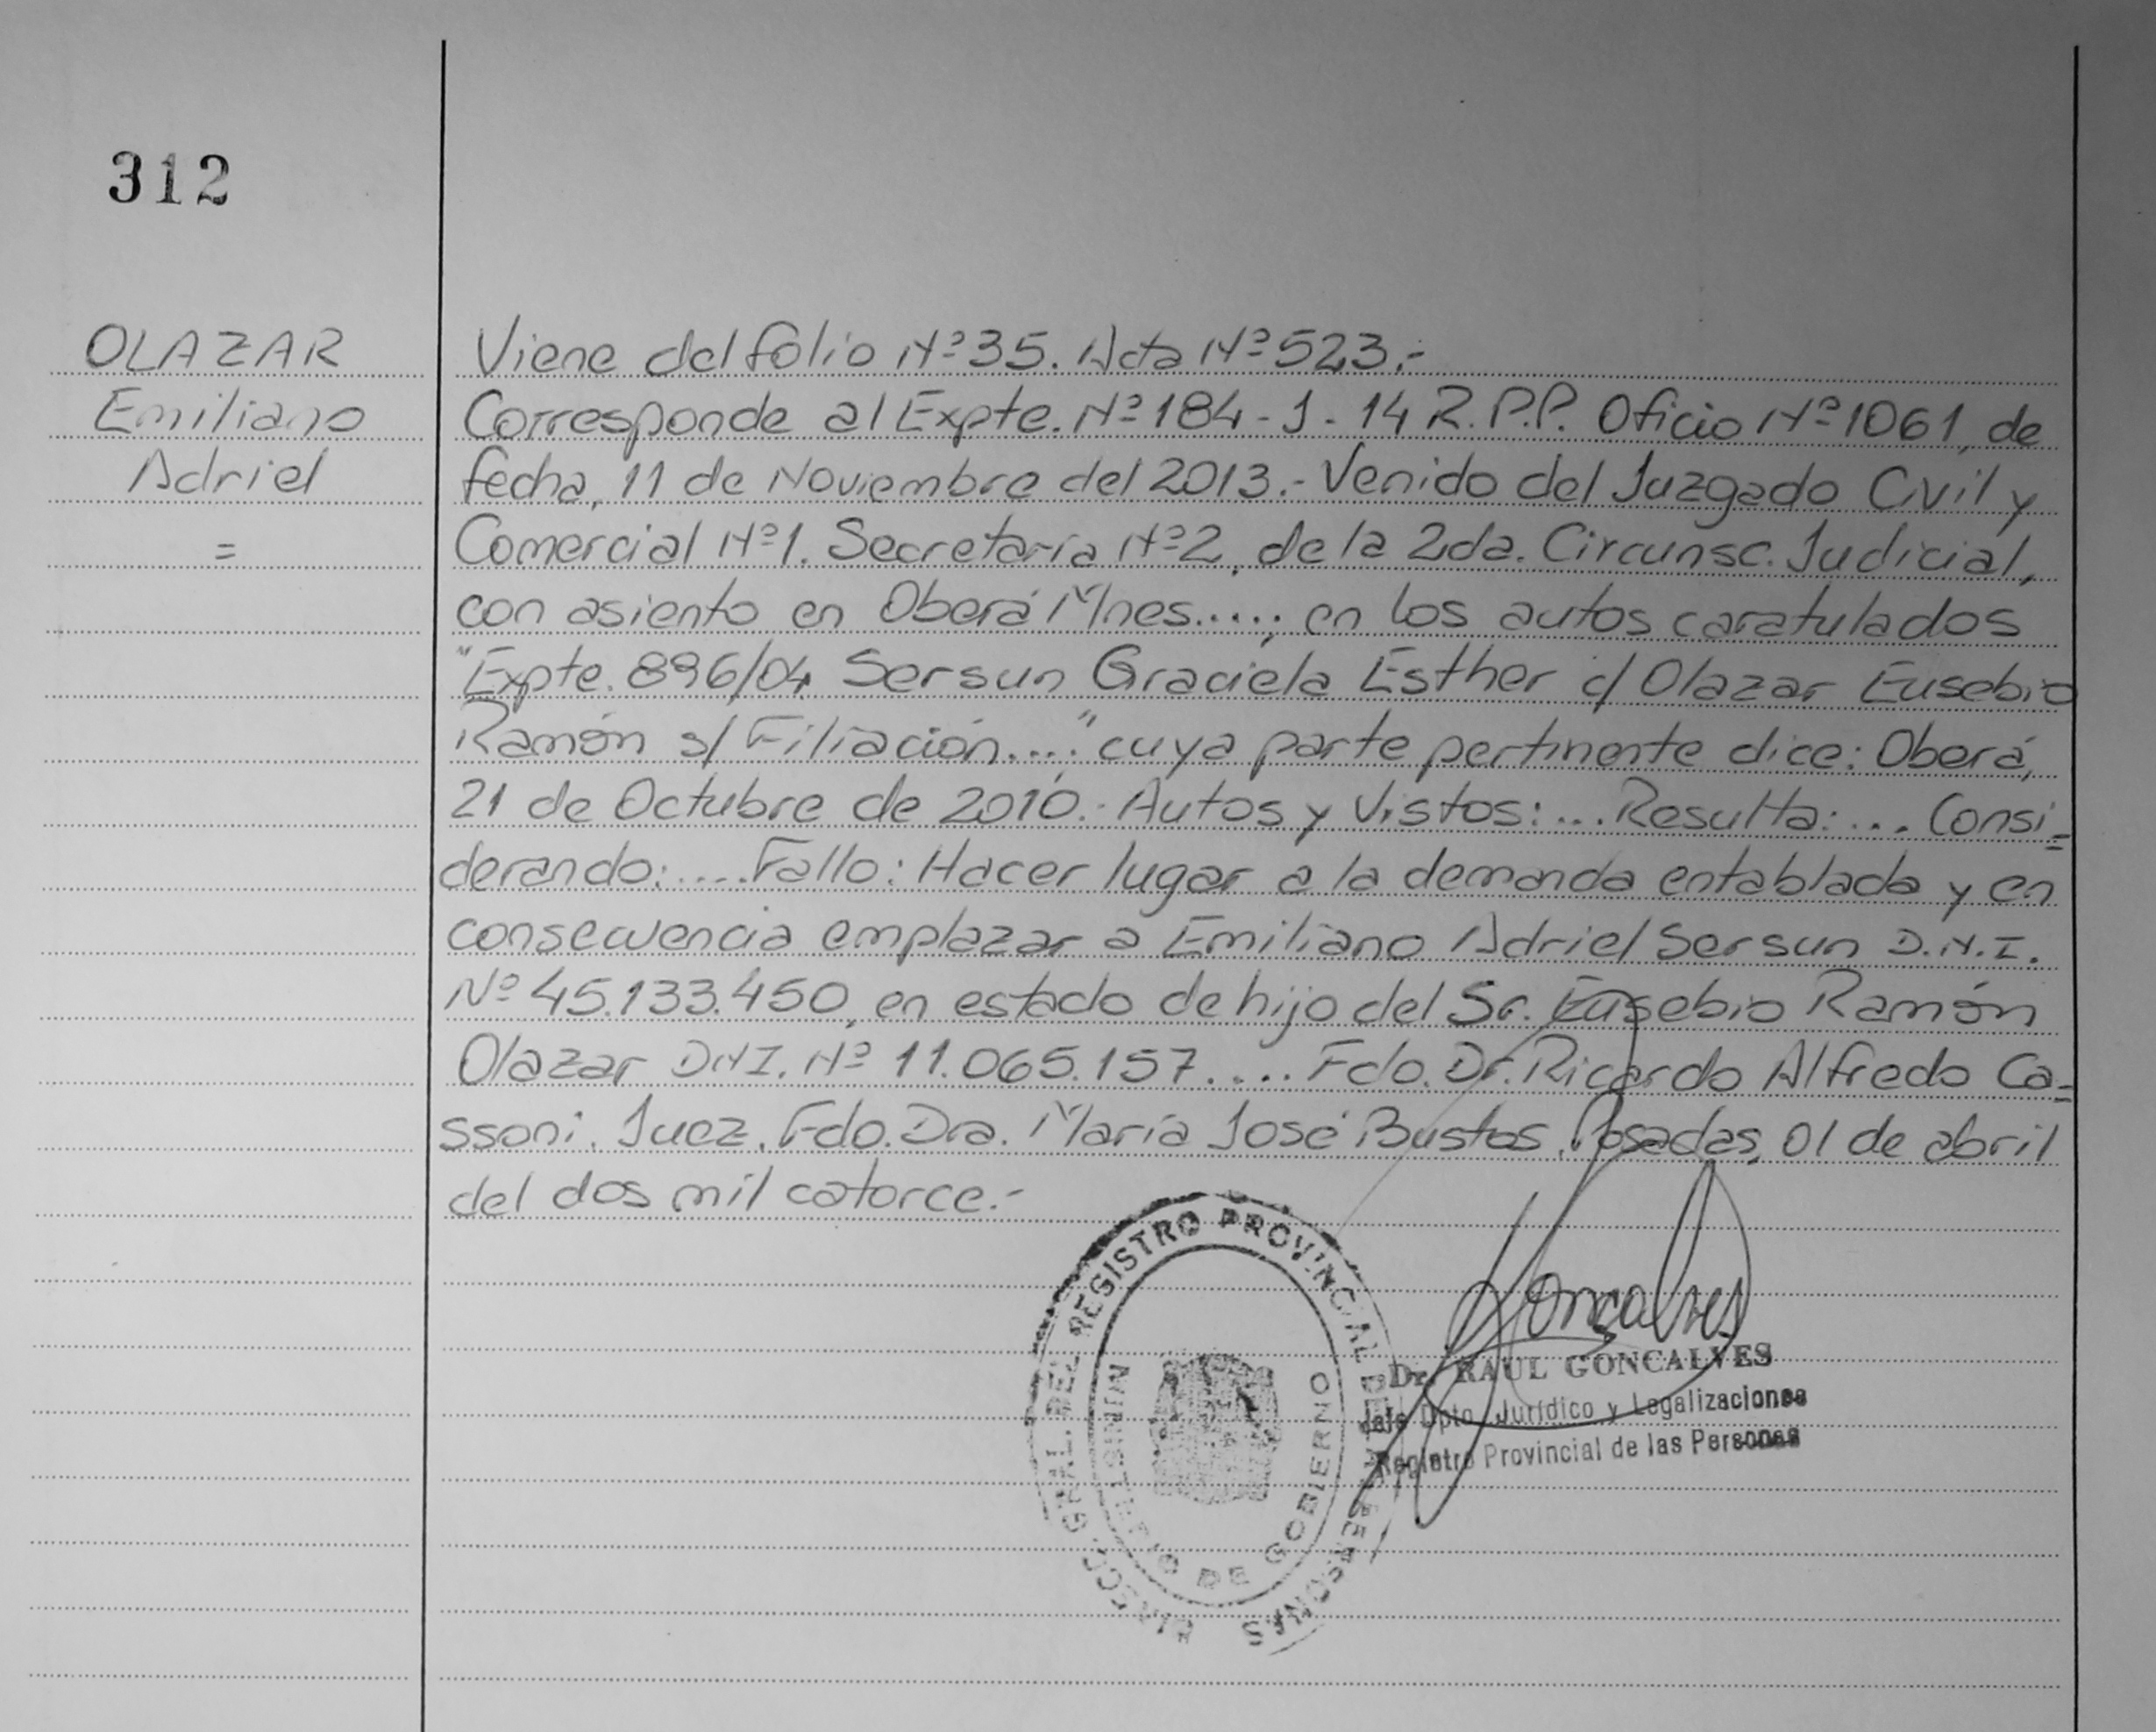 312
OLAZAR
Emiliano
Adriel
=
Viene del folio Nº 35. Acta Nº 523.-
Corresponde al Expte. Nº 184 - J - 14 R.P.P. Oficio Nº 1061, de
fecha, 11 de Noviembre del 2013.- Venido del Juzgado Civil y
Comercial Nº 1. Secretaría Nº 2, de la 2da. Circunsc. Judicial,
con asiento en Oberá Mnes....; en los autos caratulados
"Expte. 896/04 Sersun Graciela Esther c/ Olazar Eusebio
Ramón s/ Filiación....;" cuya parte pertinente dice: Oberá,
21 de Octubre de 2010.- Autos y Vistos: ... Resulta: ... Consi-
derando: .... Fallo: Hacer lugar a la demanda entablada y en
consecuencia emplazar a Emiliano Adriel Sersun D.N.I.
Nº 45.133.450, en estado de hijo del Sr. Eusebio Ramón
Olazar DNI. Nº 11.065.157.... Fdo. Dr. Ricardo Alfredo Ca-
ssoni. Juez. Fdo. Dra. María José Bustos. Posadas, 01 de abril
del dos mil catorce.-
DIRECC. GRAL. DEL REGISTRO PROVINCIAL DE LAS PERSONAS
MINISTERIO DE GOBIERNO
Goncalves
Dr. RAUL GONCALVES
Jefe Dpto. Jurídico y Legalizaciones
Registro Provincial de las Personas